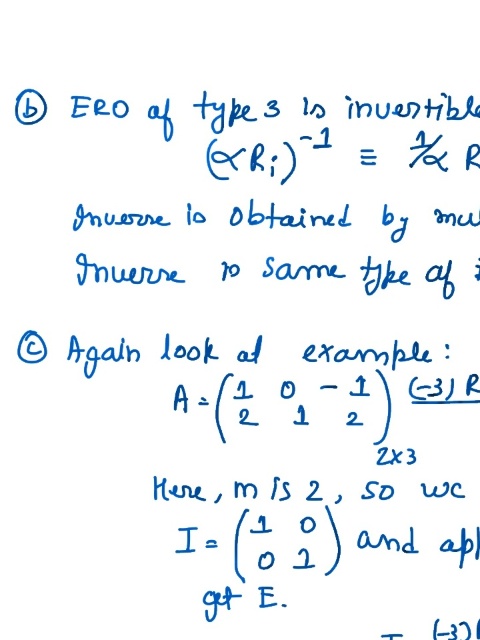 (b) ERO of type 3 is invertible
(αRi)^-1 ≡ 1/α R
Inverse is obtained by mu
Inverse is same type of
(c) Again look at example:
A = (1 0 -1 (-3) R
2 1 2) 2x3
Here, m is 2, so we
I = (1 0
0 1) and app
get E.
I (-3)